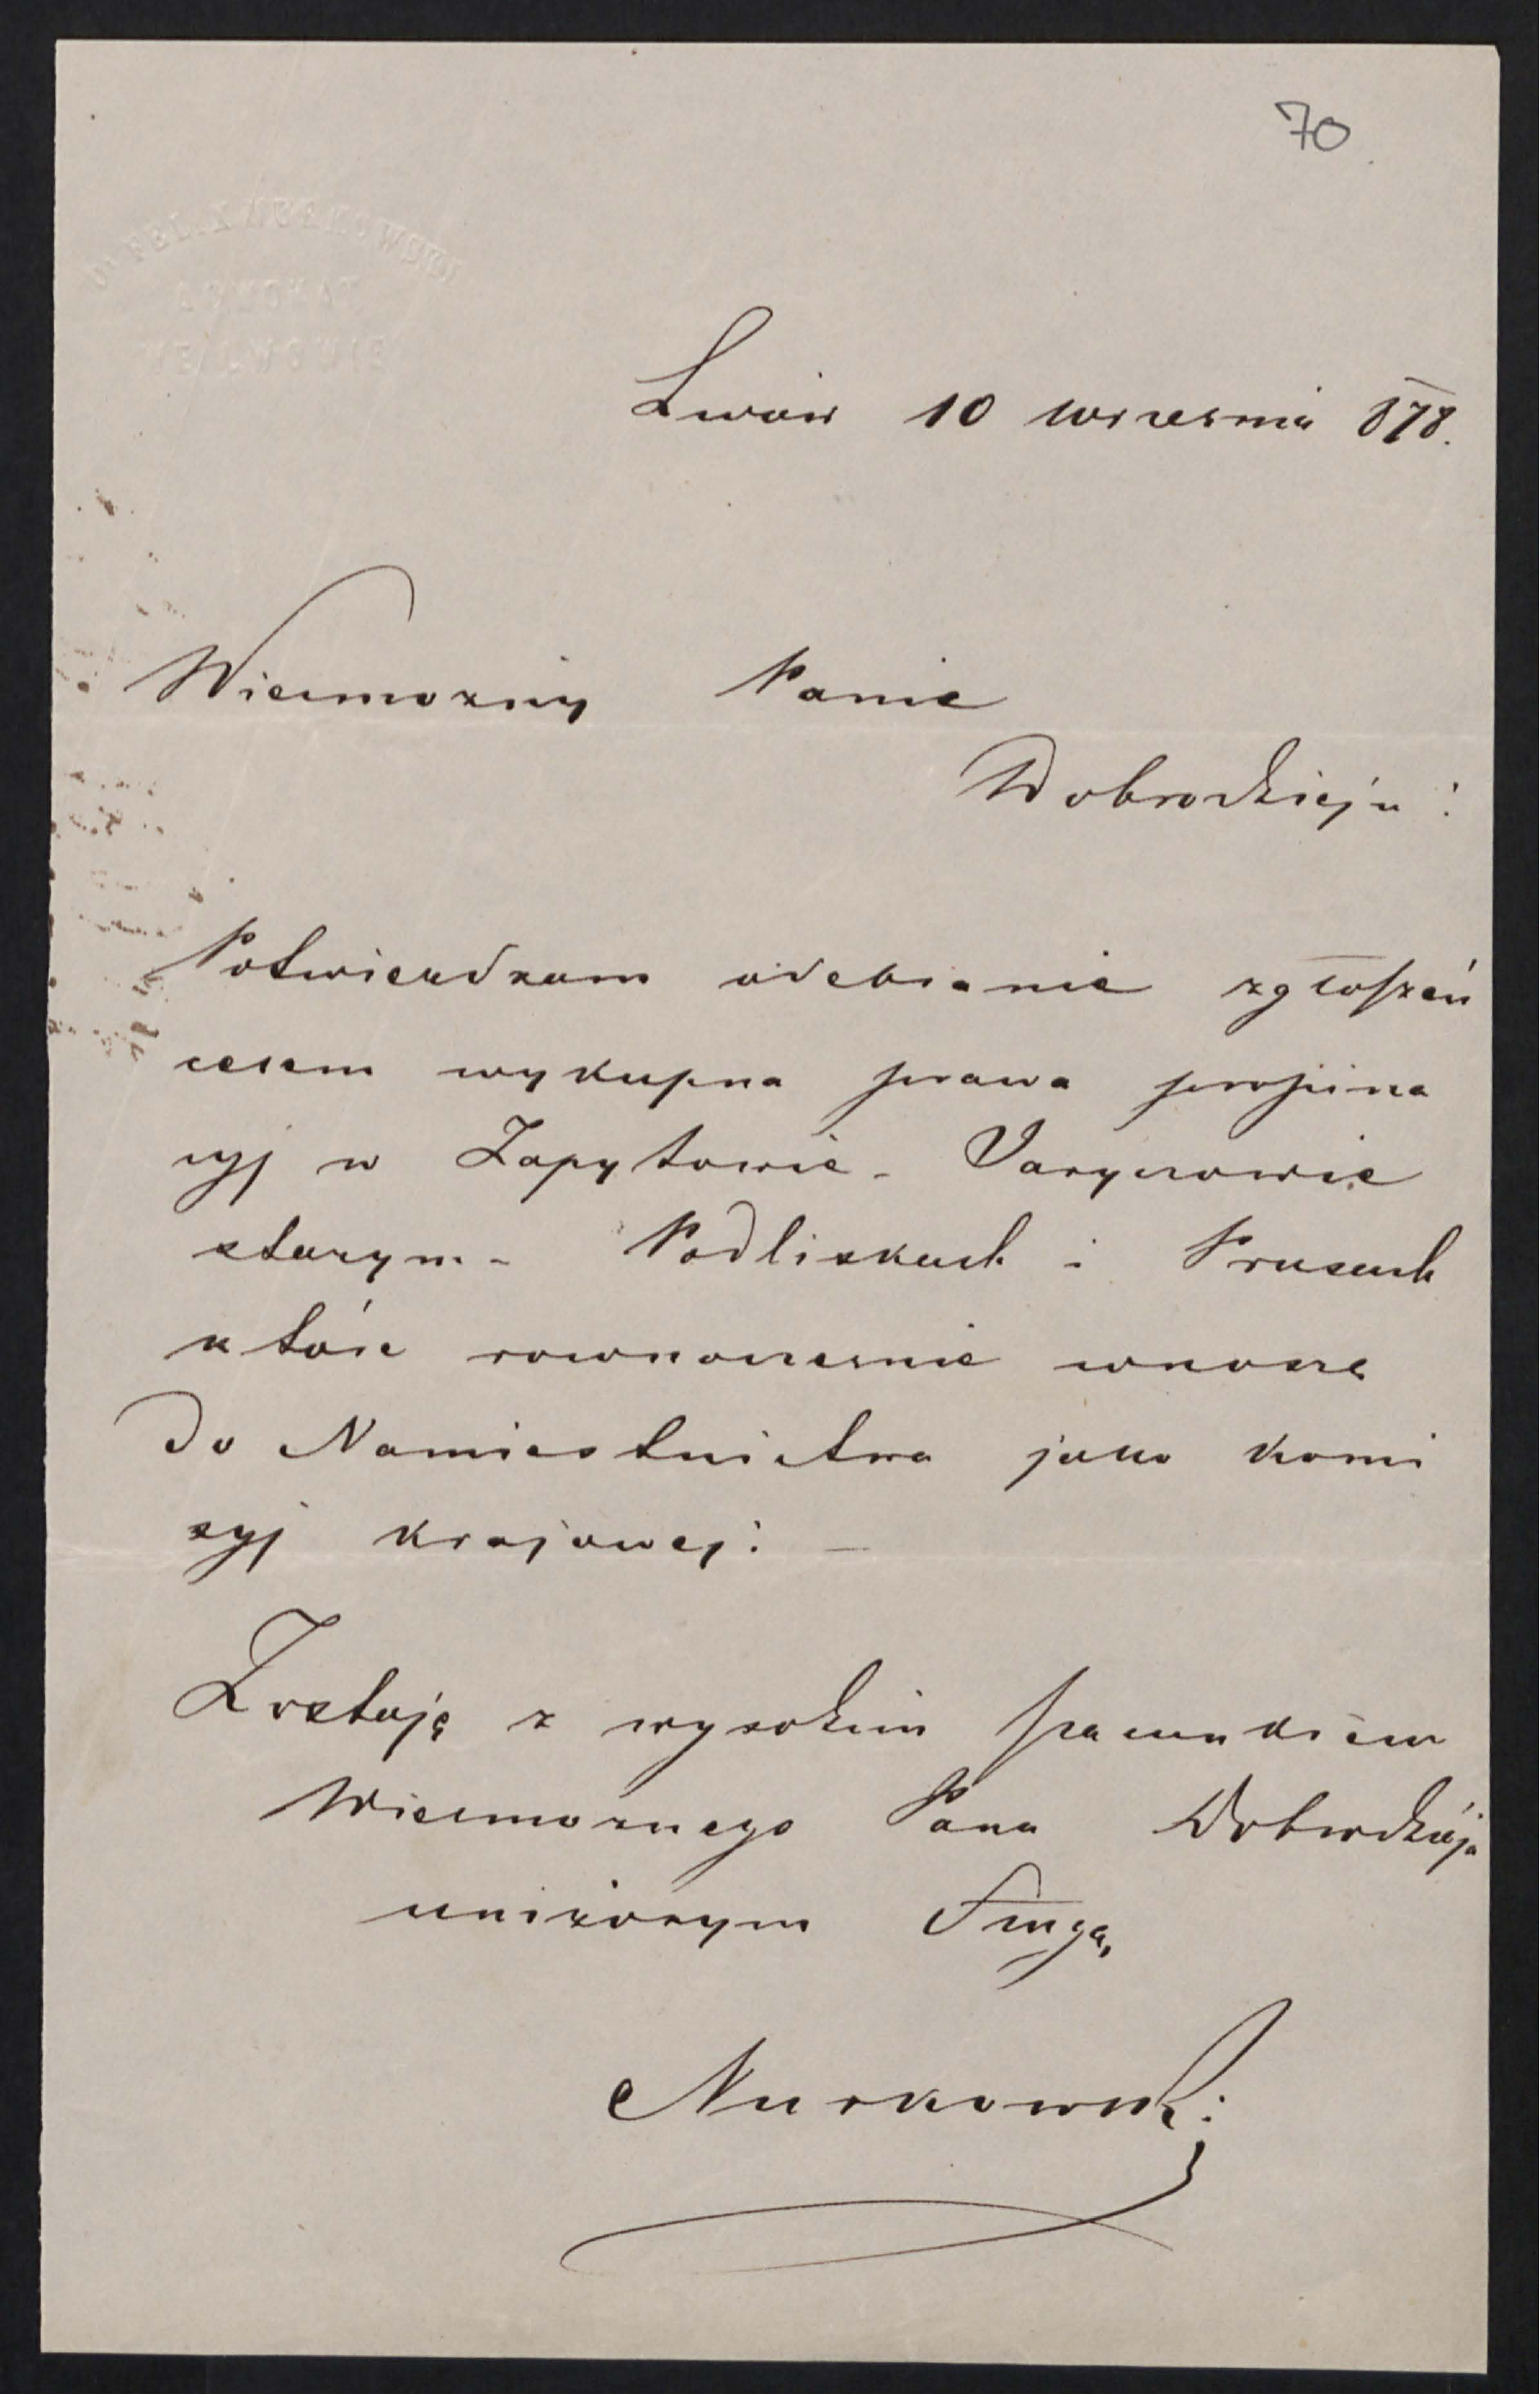 70
Dr FELIX NURKOWSKI
ADWOKAT
WE LWOWIE
Lwów 10 wrzesnia 878.
Wielmozny Panie
Dobrodzieju!
Potwierdzam odebranie zgłoszeń
celem wykupna prawa propina
cyj w Zapytowie - Jaryczowie
starym - Podliskach i Prusach
które rownoczesnie wnoszę
do Namiestnictwa jako komi
syj krajowej: —
Zostaję z wysokim szacunkiem
Wielmoznego Pana Dobrodzieja
uniżonym Sługą,
Nurkowski